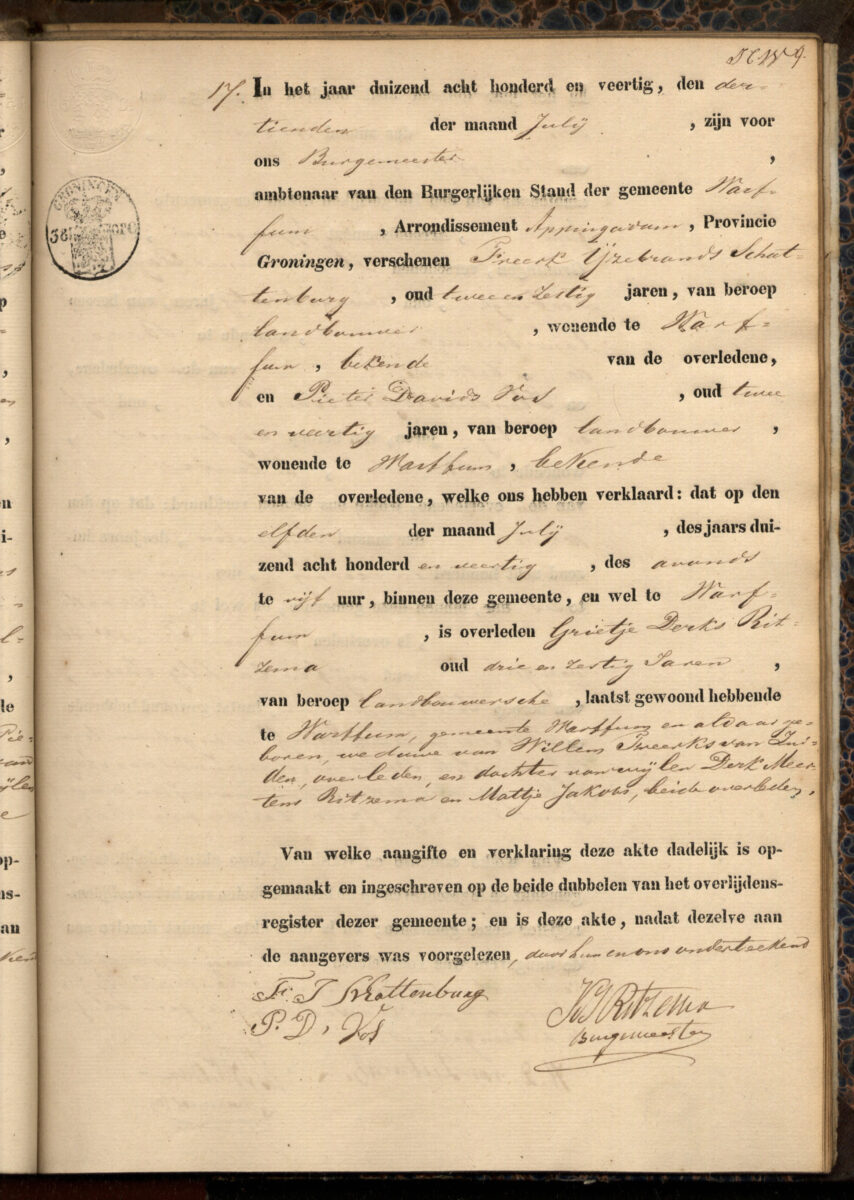 17. In het jaar duizend acht honderd en veertig, den der-
tienden der maand Julij, zijn voor
ons Burgemeester,
ambtenaar van den Burgerlijken Stand der gemeente Warf-
fum, Arrondissement Appingadam, Provincie
Groningen, verschenen Freerk IJzebrands Schat-
tenburg, oud twee en zestig jaren, van beroep
landbouwer, wonende te Warf-
fum, bekende van de overledene,
en Pieter Davids Vos, oud twee
en veertig jaren, van beroep landbouwer,
wonende te Warffum, bekende
van de overledene, welke ons hebben verklaard: dat op den
elfden der maand Julij, des jaars dui-
zend acht honderd en veertig, des avonds
te vijf uur, binnen deze gemeente, en wel te Warf-
fum, is overleden Grietje Derks Rit-
zema oud drie en zestig Jaren,
van beroep landbouwersche, laatst gewoond hebbende
te Warffum, gemeente Warffum en aldaar ge-
boren, weduwe van Willem Freerks van Zui-
den, overleden, en dochter van wijlen Derk Meer-
tens Ritzema en Mattje Jakobs, beide overleden.
Van welke aangifte en verklaring deze akte dadelijk is op-
gemaakt en ingeschreven op de beide dubbelen van het overlijdens-
register dezer gemeente; en is deze akte, nadat dezelve aan
de aangevers was voorgelezen, door hun en ons onderteekend
Schattenburg
P. D. Vos
Ritzema
Burgemeester
GRONINGEN